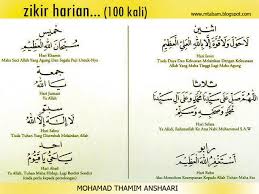 zikir harian... (100 kali)
www.mtalsam.blogspot.com
اثنين
لَا حَوْلَ وَلَا قُوَّةَ إِلَّا بِاللهِ الْعَلِيِّ الْعَظِيْمِ
Hari Isnin
Tiada Daya Dan Kekuatan Melainkan Dengan Kekuatan
Allah Yang Maha Tinggi Lagi Maha Agung
ثلاثا
Hari Selasa
Ya Allah, Rahmatilah Ke Atas Nabi Muhammad S.A.W
رابو
Hari Rabu
Aku Memohon Keampunan Kepada Allah Yang Maha
خميس
سُبْحَانَ اللهِ الْعَظِيْمِ
Hari Khamis
Maha Suci Allah Yang Agung Dan Segala Puji Untuk-Nya
جمعة
يَا اَللهُ
Hari Jumaat
Ya Allah
سبتو
لَا إِلَهَ إِلَّا اللهُ
Hari Sabtu
Tiada Tuhan Yang Disembah Melainkan Allah
احد
يَا حَيُّ يَا قَيُّوْمُ
Hari Ahad
Ya Allah, Tuhan Maha Hidup, Lagi Berdiri Sendiri
(tiada perlu kepada pertolongan)
MOHAMAD THAMIM ANSHAARI